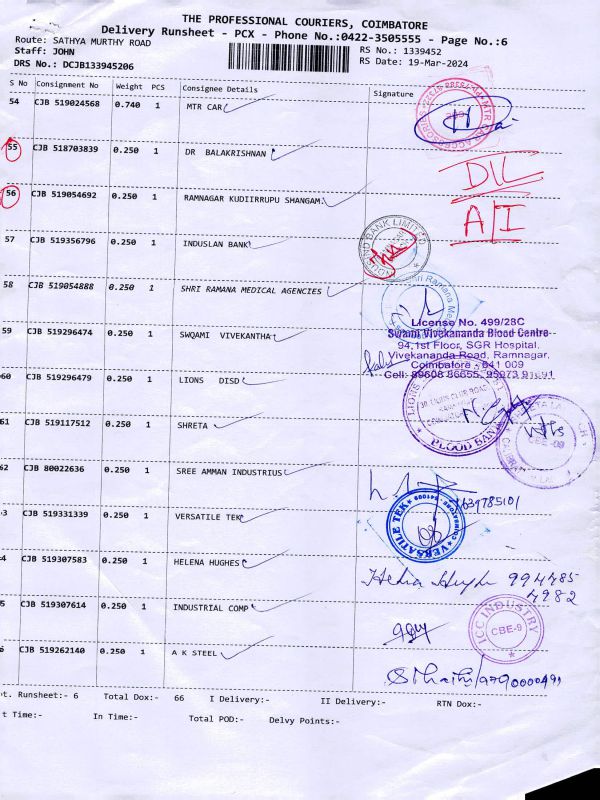 THE PROFESSIONAL COURIERS, COIMBATORE
Delivery Runsheet - PCX - Phone No.:0422-3505555 - Page No.:6
Route: SATHYA MURTHY ROAD
RS No.: 1339452
Staff: JOHN
RS Date: 19-Mar-2024
DRS No.: DCJB133945206
S No Consignment No Weight PCS Consignee Details Signature
54 CJB 519024568 0.740 1 MTR CAR
55 CJB 518703839 0.250 1 DR BALAKRISHNAN
DIL
56 CJB 519054692 0.250 1 RAMNAGAR KUDIIRRUPU SHANGAM
A/I
57 CJB 519356796 0.250 1 INDUSLAN BANK
BANK LIMITED
58 CJB 519054888 0.250 1 SHRI RAMANA MEDICAL AGENCIES
Shri Ramana Me
License No. 499/28C
59 CJB 519296474 0.250 1 SWQAMI VIVEKANTHA
Swami Vivekananda Blood Centre
94,1st Floor, SGR Hospital,
Vivekananda Road, Ramnagar,
Coimbatore - 641 009
60 CJB 519296479 0.250 1 LIONS DISD
LIONS
BLOOD BANK
61 CJB 519117512 0.250 1 SHRETA
CBE-09
62 CJB 80022636 0.250 1 SREE AMMAN INDUSTRIUS
3 CJB 519331339 0.250 1 VERSATILE TEK
VERSATILE TEK
4 CJB 519307583 0.250 1 HELENA HUGHES
994785
7982
5 CJB 519307614 0.250 1 INDUSTRIAL COMP
ICC INDUSTRY
CBE-9
6 CJB 519262140 0.250 1 A K STEEL
9790000491
ot. Runsheet:- 6 Total Dox:- 66 I Delivery:- II Delivery:- RTN Dox:-
t Time:- In Time:- Total POD:- Delvy Points:-